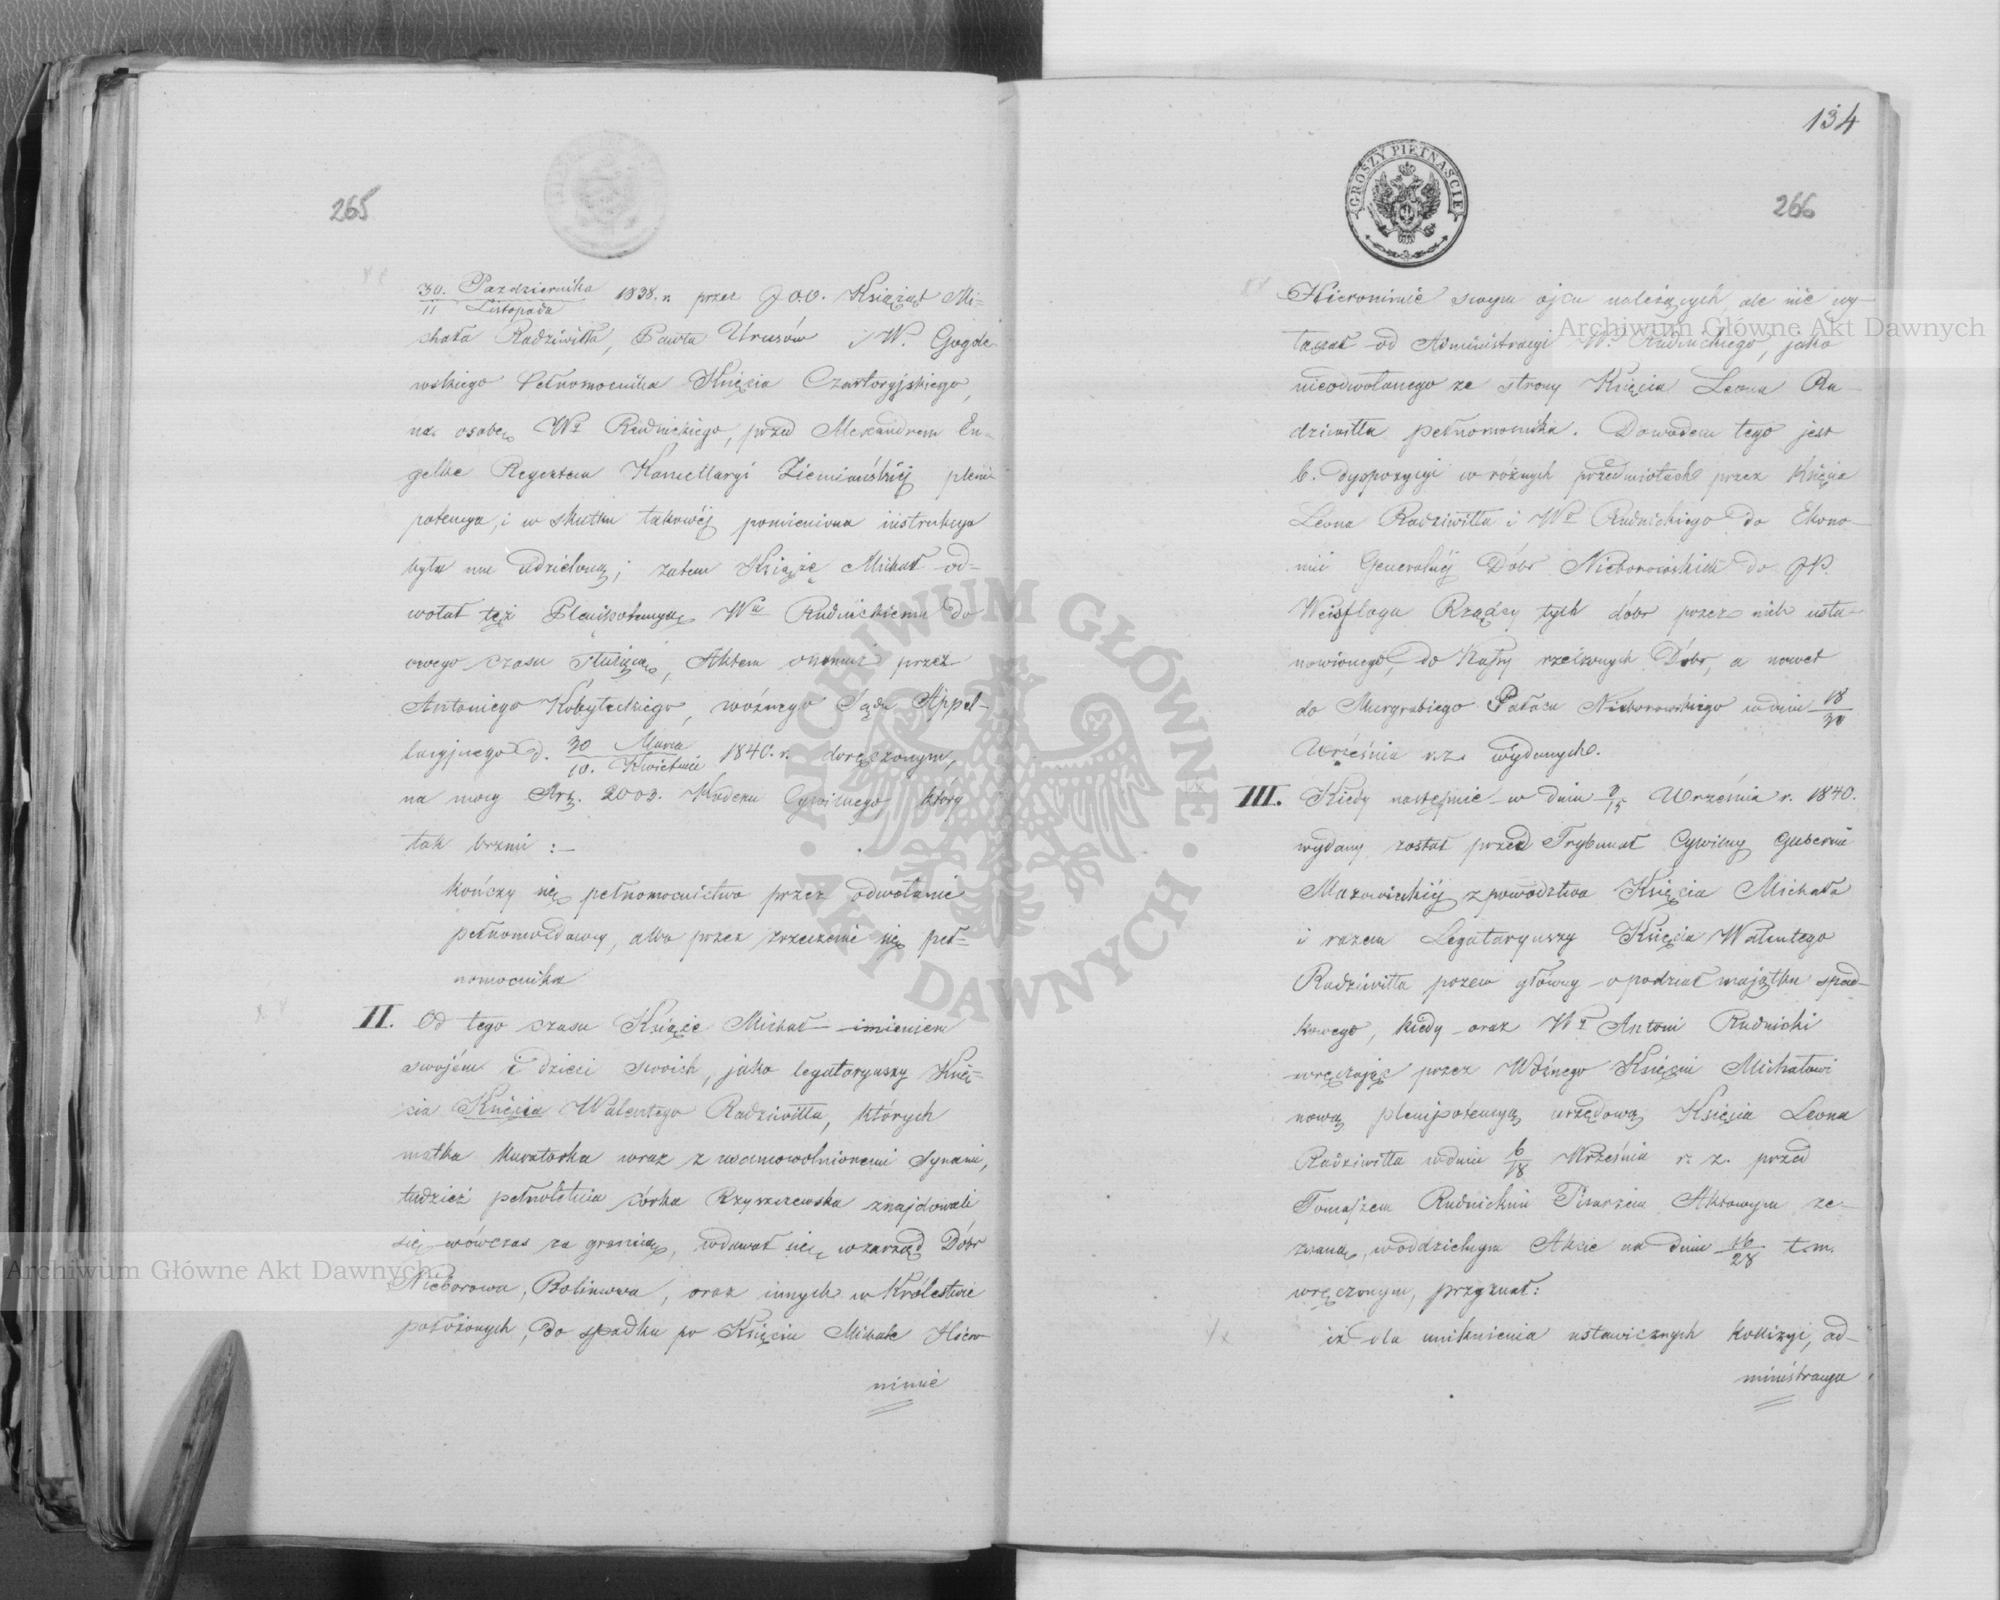 265
30. Pazdziernika / 11 Listopada 1838. r. przez J.O.O. Książąt Mi=
chała Radziwiłła, Pawła Urusów i W. Gogole
wskiego Pełnomocnika Księcia Czartoryjskiego,
na osobę Wo Rudnickiego, przed Alexandrem En=
gelke Regentem Kancellaryi Ziemiańskiej pleni
potencya, i w skutku takowéj pomieniona instrukcya
była mu udzieloną; zatem Książę Michał od=
wołał też Plenipotencyą Wu Rudnickiemu do
owego czasu służącą, Aktem przez
Antoniego Kobyłeckiego, woźnego Sądu Appel=
lacyjnego d. 30 Marca / 10. Kwietnia 1840. r. doręczonym,
na mocy Art. 2003. Kodexu Cywilnego, który
tak brzmi :—
kończy się pełnomocnictwo przez odwołanie
pełnomodawcy, albo przez zrzeczenie się peł=
nomocnika
II. Od tego czasu Książę Michał imieniem
swojém i dzieci swoich, jako legataryuszy Księ=
cia Księcia Walentego Radziwiłła, których
matka kuratorka wraz z usamowolnionemi synami,
tudzież pełnoletnia córka Rzyszczewska znajdowali
się wówczas za granicą, wdawał się w zarząd Dóbr
Nieborowa, Bolimowa, oraz innych w Królestwie
położonych, do spadku po Księciu Michale Hiero
nimie
134
GROSZY PIĘTNAŚCIE
266
Hieronimie swym ojcu należących, ale nie wy=
łączał od Administracyi Wo Rudnickiego, jako
nieodwołanego ze strony Księcia Leona Ra=
dziwiłła pełnomocnika. Dowodem tego jest
6. dyspozycyi w różnych przedmiotach przez Księcia
Leona Radziwiłła i Wo Rudnickiego do Ekono=
mii Generalnéj Dóbr Nieborowskich do JP.
Weisfloga Rządcy tych dóbr przez nich usta=
nowionego, do Kassy rzeczonych Dóbr, a nawet
do Murgrabiego Pałacu Nieborowskiego w dniu 18/30
Września r.z. wydanych.
III. Kiedy następnie w dniu 3/15 Września r. 1840.
wydany został przed Trybunał Cywilny Gubernii
Mazowieckiéj z powództwa Księcia Michała
i razem Legataryuszy Księcia Walentego
Radziwiłła pozew główny o podział majątku spad=
kowego, kiedy oraz Wy Antoni Rudnicki
wręczając przez Woźnego Księciu Michałowi
nową plenipotencyą urzędową Księcia Leona
Radziwiłła w dniu 6/18 Września r. z. przed
Tomaszem Rudnickim Pisarzem Aktowym ze=
znaną, w oddzielnym Akcie na dniu 16/28 t.m.
wręczonym, przyznał:
iż dla uniknienia ustawicznych kollizyi, ad=
ministracya
ARCHIWUM GŁÓWNE AKT DAWNYCH
Archiwum Główne Akt Dawnych
Archiwum Główne Akt Dawnych